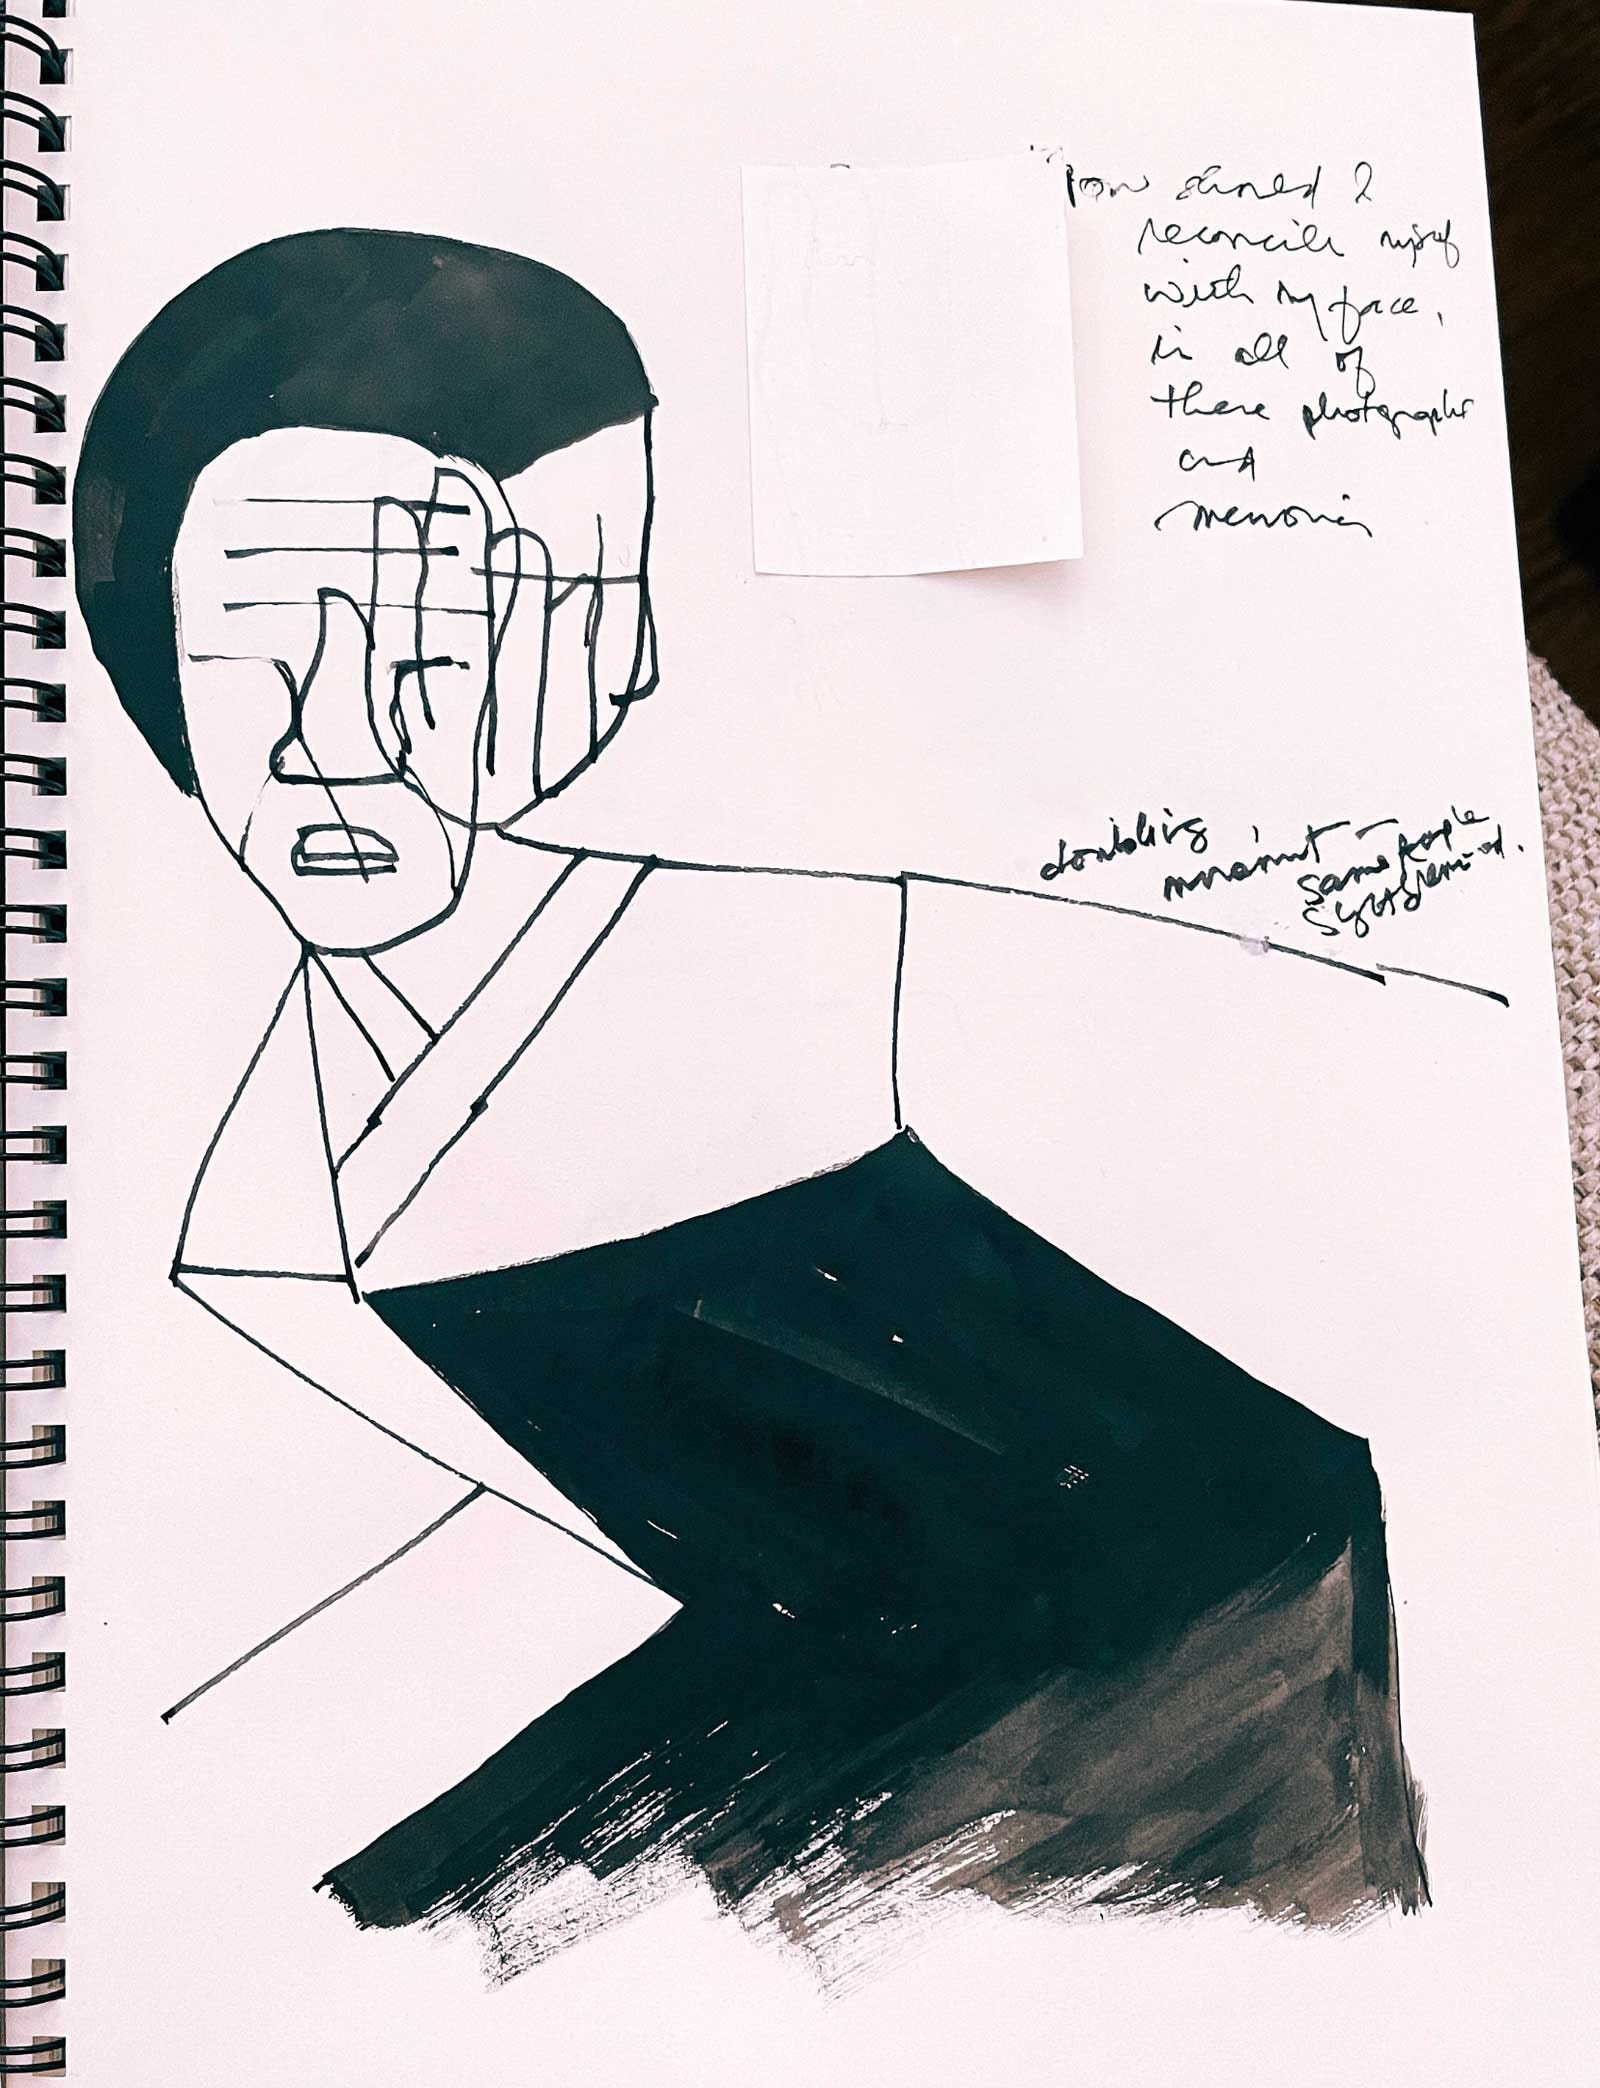 How should I
reconcile myself
with my face,
in all of
these photographs
and
memories
doubling
movement –
same people